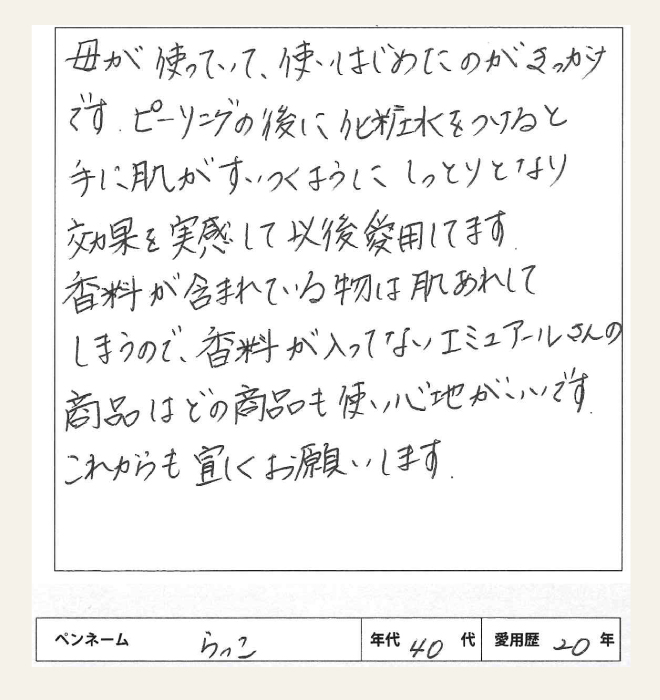 母が使っていて、使いはじめたのがきっかけ
です。ピーリングの後に化粧水をつけると
手に肌がすいつくようにしっとりとなり
効果を実感して以後愛用してます。
香料が含まれている物は肌あれして
しまうので、香料が入ってないエミュアールさんの
商品はどの商品も使い心地がいいです。
これからも宜しくお願いします。
ペンネーム らっこ 年代 40 代 愛用歴 20 年